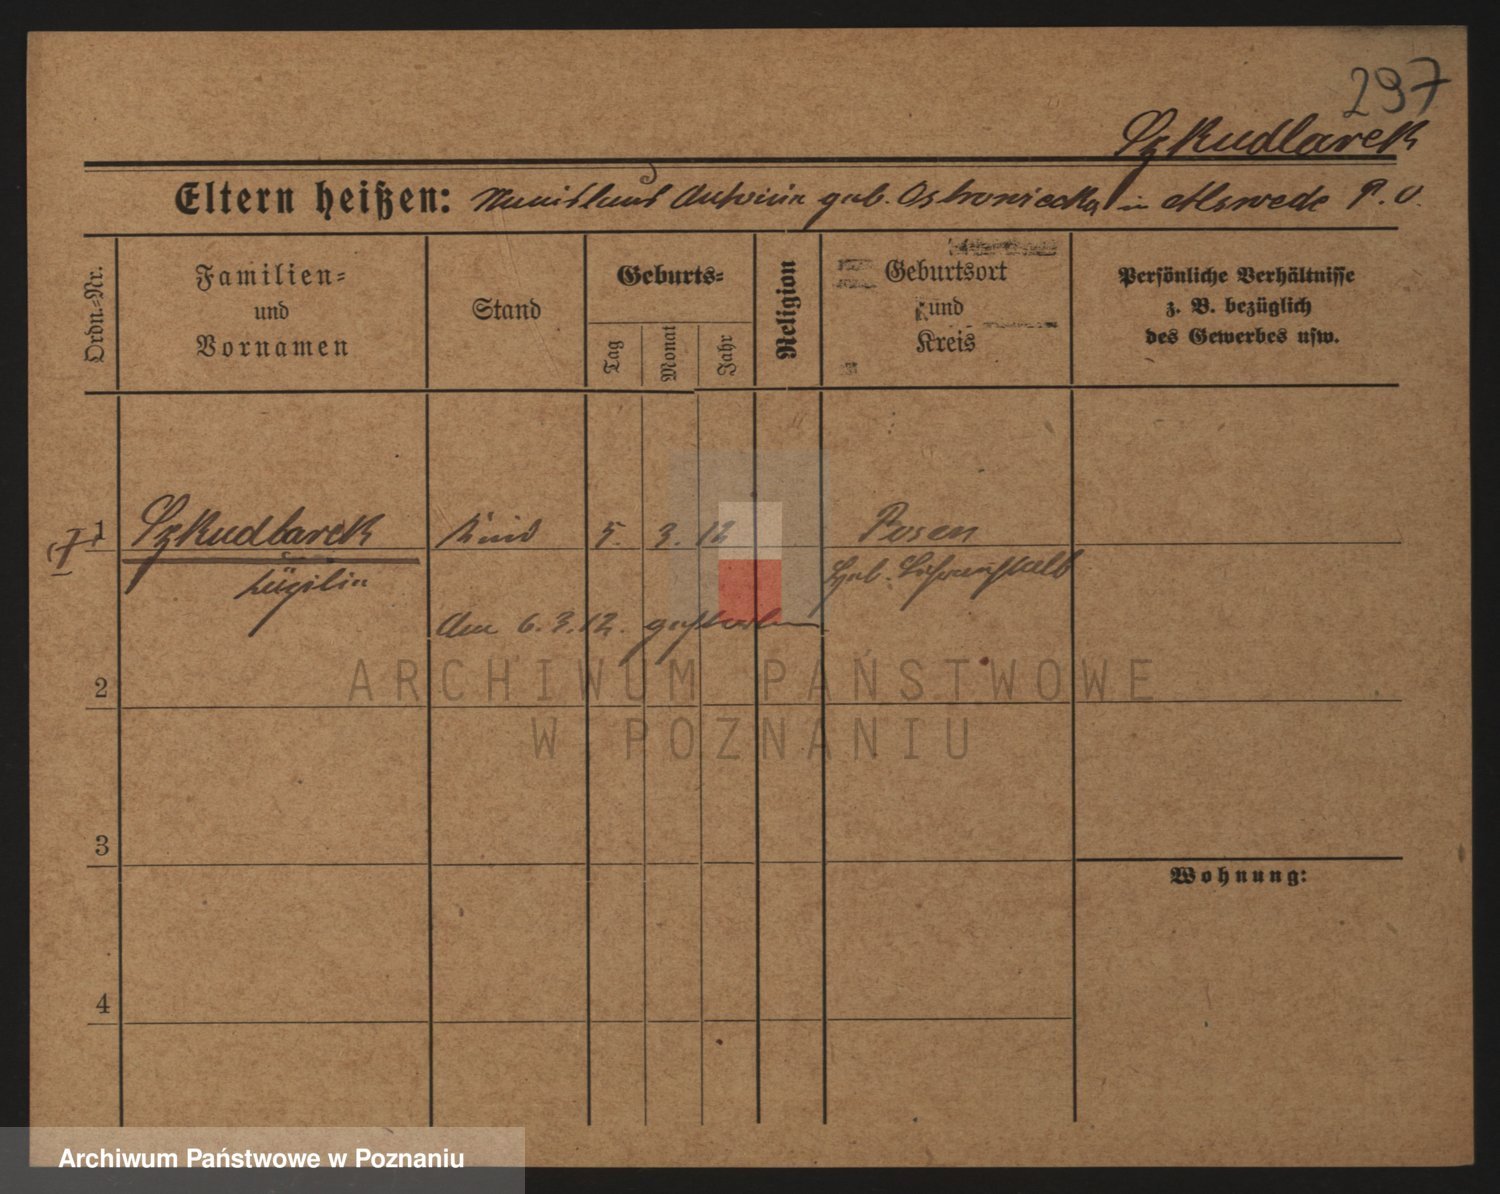 297
Szkudlarek
Eltern heißen: geb. in Alswede P. O.
Ordn.-Nr.
Familien-
und
Vornamen
Stand
Geburts-
Tag
Monat
Jahr
Religion
Geburtsort
und
Kreis
Persönliche Verhältnisse
z. B. bezüglich
des Gewerbes usw.
1 Szkudlarek Kind 5. 3. 12 Posen
Heb. Lehranstalt
am 6.3.12. gestorben.
2
ARCHIWUM PAŃSTWOWE
W POZNANIU
3
Wohnung:
4
Archiwum Państwowe w Poznaniu